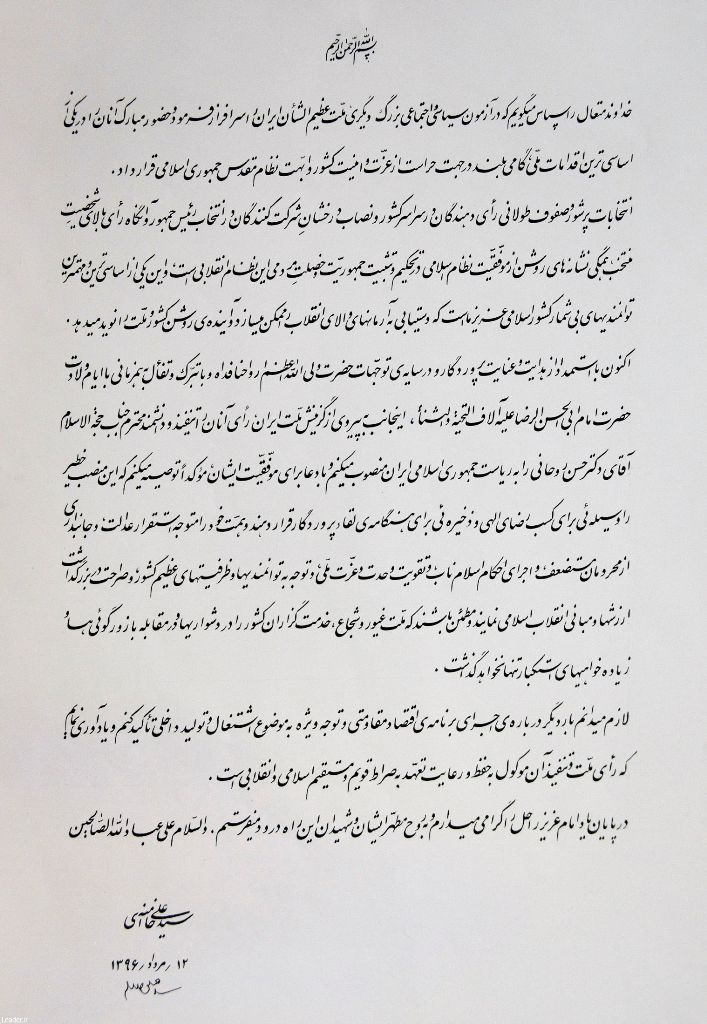 بسم الله الرحمن الرحیم
خداوند متعال را سپاس میگویم که در آزمون سیاسی و اجتماعی بزرگ دیگری ملت عظیم‌الشأن ایران را سرافراز فرمود و حضور مبارک آنان را در یکی از
اساسی‌ترین اقدامات ملّی، گامی بلند در جهت حراست از عزّت و امنیت کشور و ابّهت نظام مقدس جمهوری اسلامی قرار داد.
انتخابات پرشور و صفوف طولانی رأی دهندگان در سراسر کشور و نصاب درخشان شرکت کنندگان در انتخاب رئیس جمهور و آنگاه رأی بالای شخصیت
منتخب، همگی نشانه‌های روشن از موفّقیت نظام اسلامی در تحکیم و تثبیت جمهوریّت و خصلت مردمی این نظام انقلابی است، و این یکی از اساسی‌ترین و مهمترین
توانمندیهای بی‌شمار کشور اسلامی عزیز ماست که دستیابی به آرمانهای والای انقلاب را ممکن میسازد و آینده‌ی روشن کشور و ملّت را نوید میدهد.
اکنون با استمداد از هدایت و عنایت پروردگار و در سایه‌ی توجّهات حضرت ولی الله الاعظم ارواحنا فداه و با تبرّک و تفأّل به همزمانی با ایام ولادت
حضرت امام ابی‌الحسن الرضا علیه آلاف التحیة والثناء، اینجانب به پیروی از گزینش ملّت ایران، رأی آنان را تنفیذ و دانشمند محترم جناب حجةالاسلام
آقای دکتر حسن روحانی را به ریاست جمهوری اسلامی ایران منصوب میکنم و با دعا برای موفّقیّت ایشان مؤکداً توصیه میکنم که این منصب خطیر
را وسیله‌ئی برای کسب رضای الهی و ذخیره‌ئی برای هنگامه‌ی لقاء پروردگار قرار دهند و همّت خود را متوجه استقرار عدالت، و جانبداری
از محرومان مستضعف، و اجرای احکام اسلام ناب، و تقویت وحدت و عزّت ملّی، و توجه به توانمندیها و ظرفیتهای عظیم کشور، و صراحت در بزرگداشت
ارزشها و مبانی انقلاب اسلامی نمایند و مطمئن باشند که ملّت غیور و شجاع، خدمت‌گزاران کشور را در دشواریها و در مقابله با زورگوئی‌ها و
زیاده‌خواهیهای استکبار تنها نخواهد گذاشت.
لازم میدانم بار دیگر درباره‌ی اجرای برنامه‌ی اقتصاد مقاومتی و توجه ویژه به موضوع اشتغال و تولید داخلی تأکید کنم و یادآوری نمایم
که رأی ملّت و تنفیذ آن موکول به حفظ و رعایت تعهّد به صراط قویم و مستقیم اسلامی و انقلابی است.
در پایان یاد امام عزیز راحل را گرامی میدارم و به روح مطهّر ایشان و شهیدان این راه درود میفرستم. والسّلام علی عباد الله الصالحین
سیّدعلی خامنه‌ای
۱۲ / مرداد / ۱۳۹۶
Leader.ir